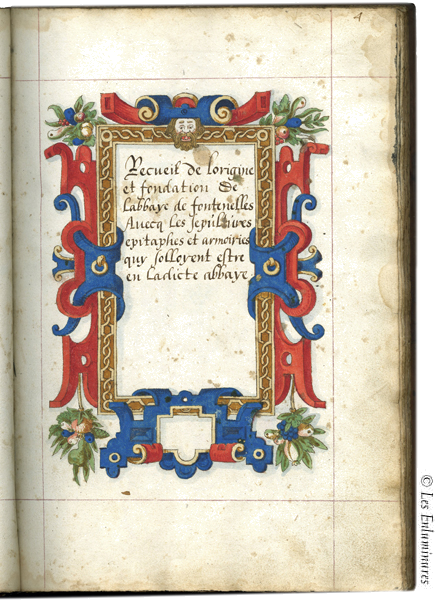 Recueil de lorigine
et fondation De
Labbaye de fontenelles
Auecq Les sepultures
epitaphes et armoiries
quy solloyent estre
en Ladicte abbaye
© Les Enluminures